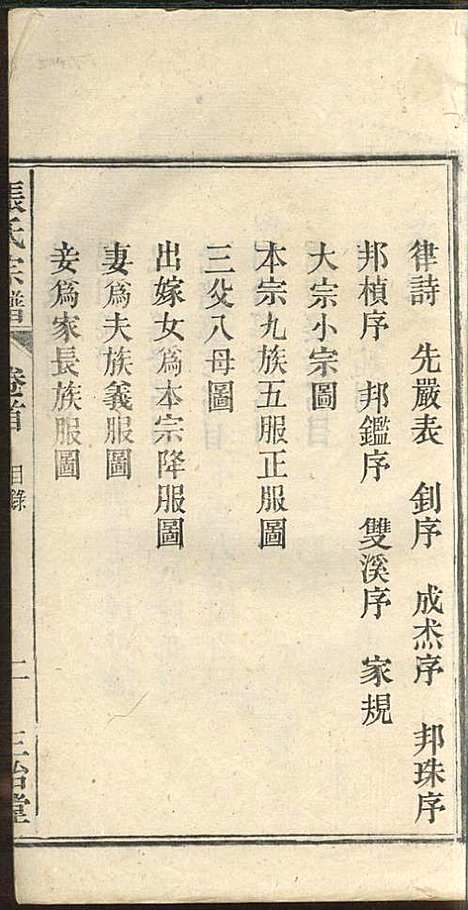 律詩 先嚴表 釗序 成烋序 邦珠序
邦楨序 邦鑑序 雙溪序 家規
大宗小宗圖
本宗九族五服正服圖
三父八母圖
出嫁女爲本宗降服圖
妻爲夫族義服圖
妾爲家長族服圖
張氏宗譜 卷首 目錄 二 三治堂